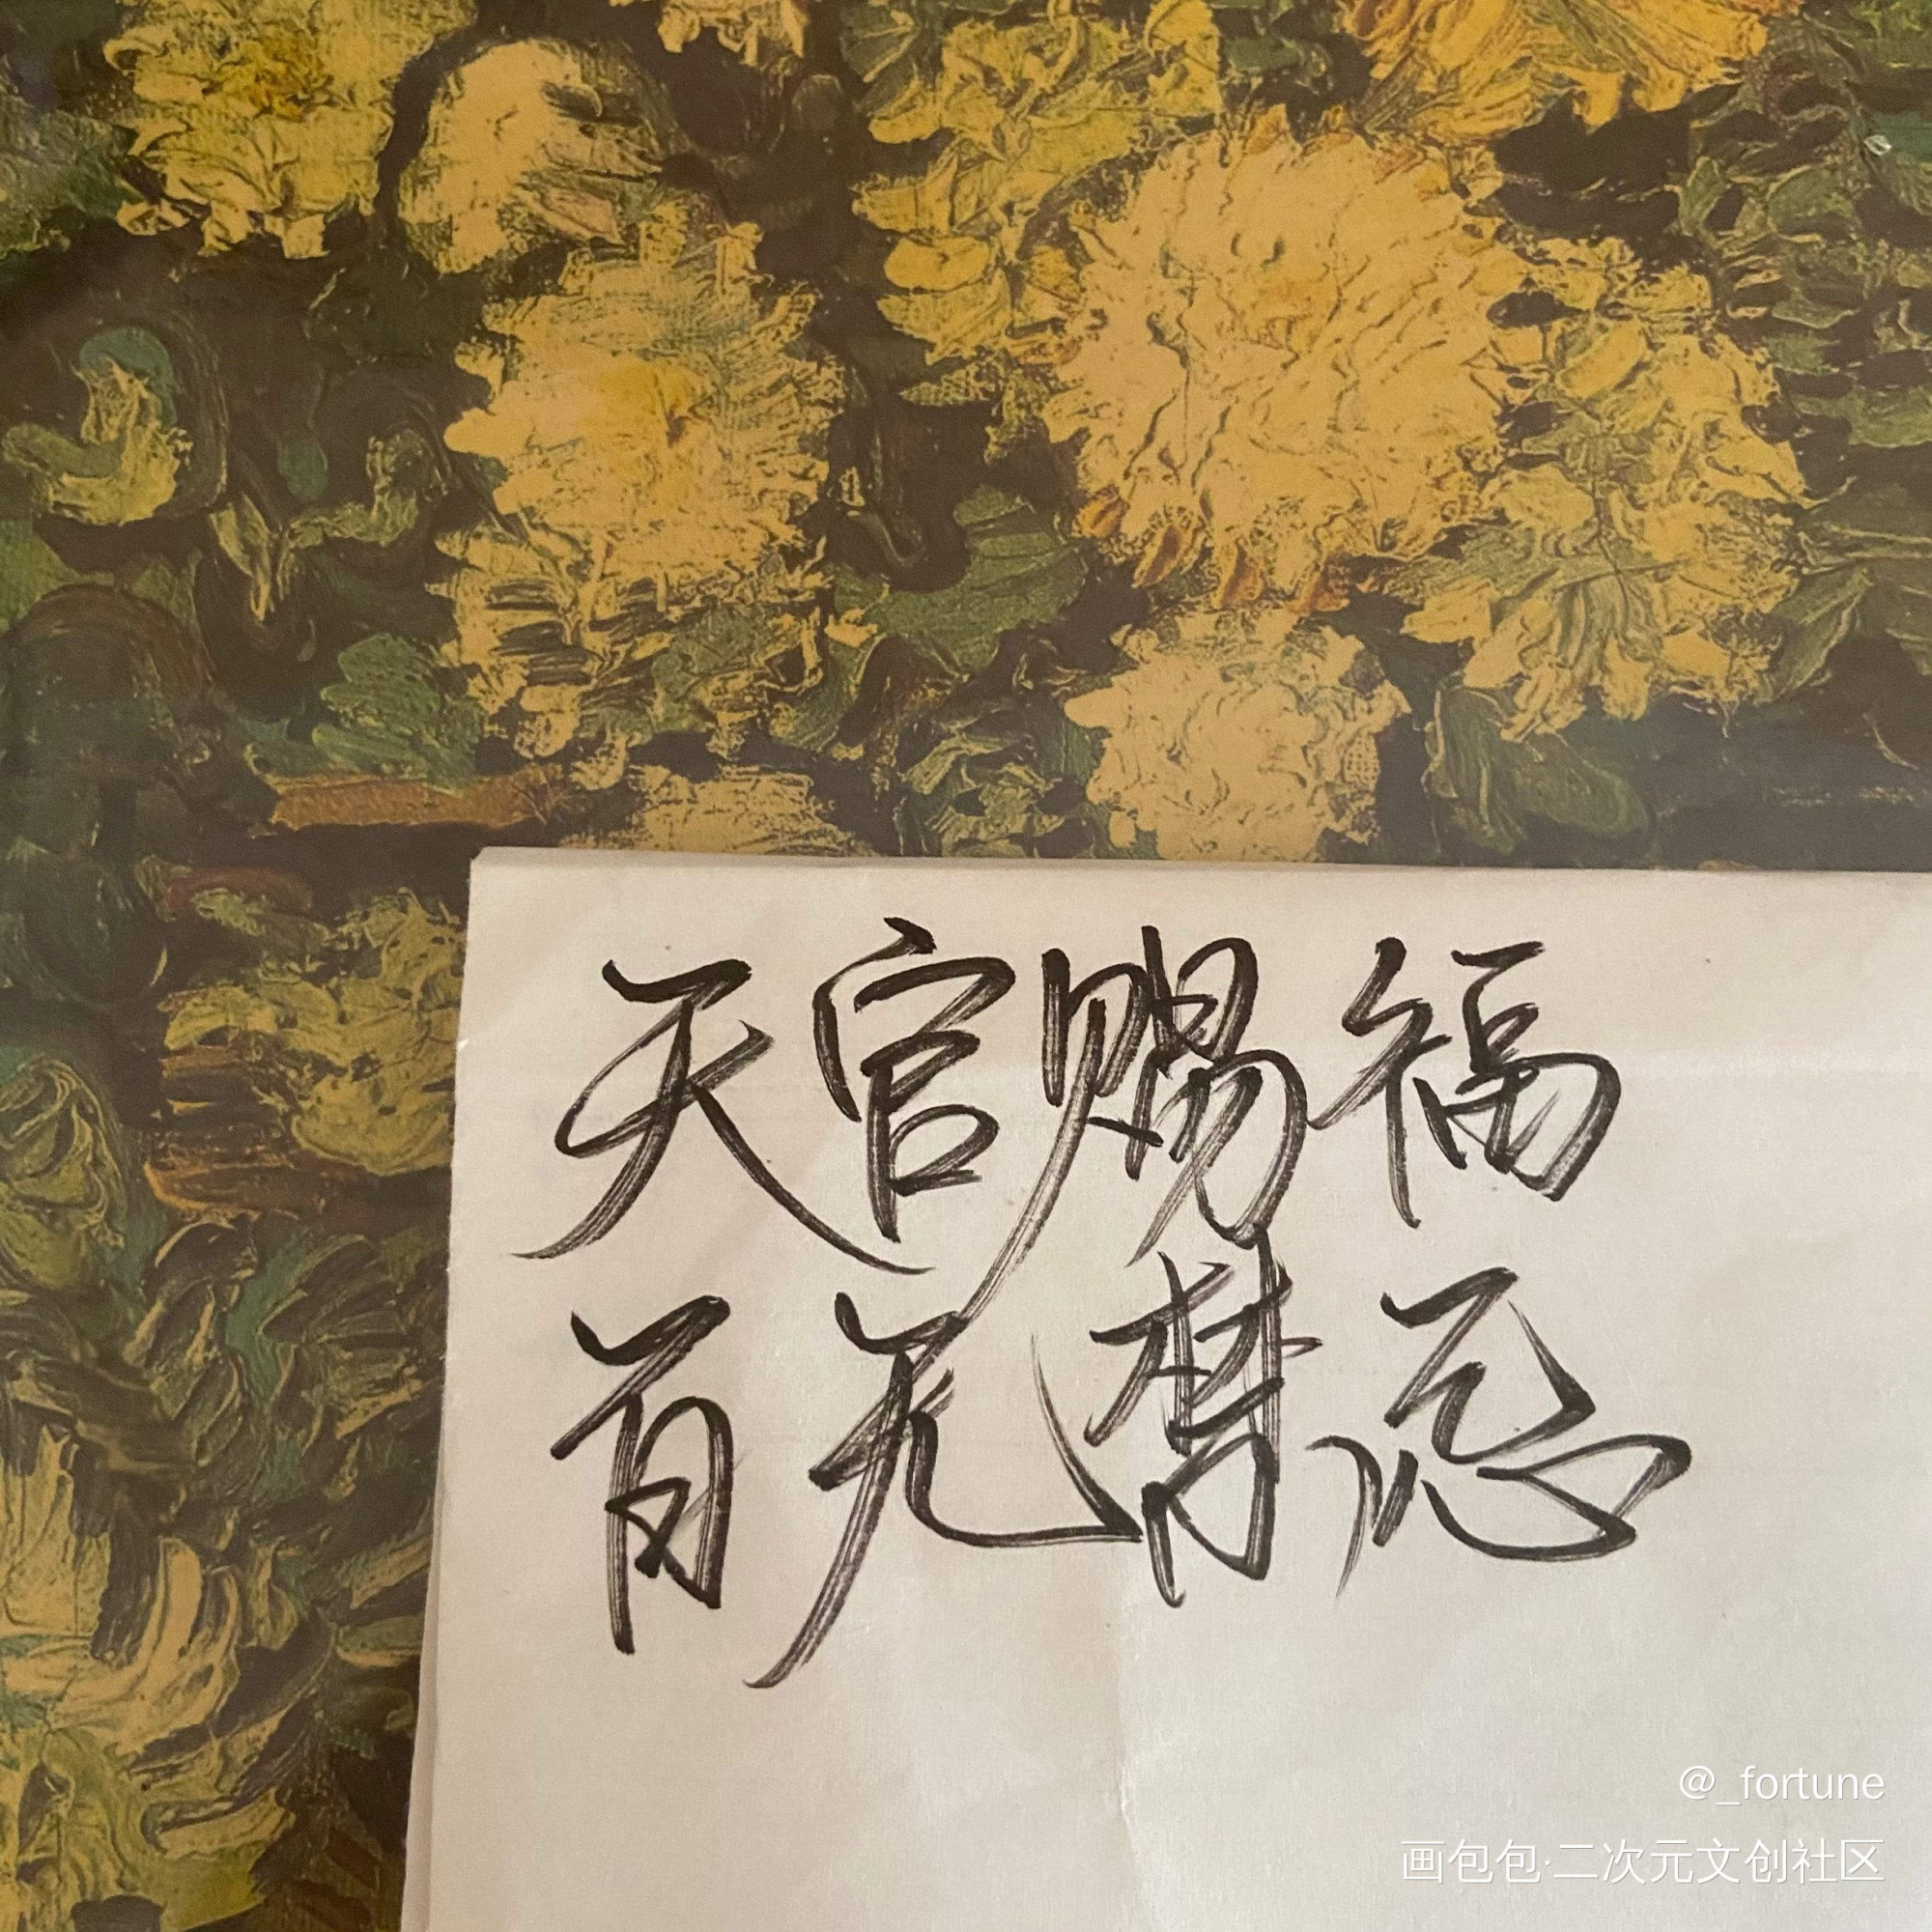 天官赐福
百无禁忌
@_fortune
画包包·二次元文创社区